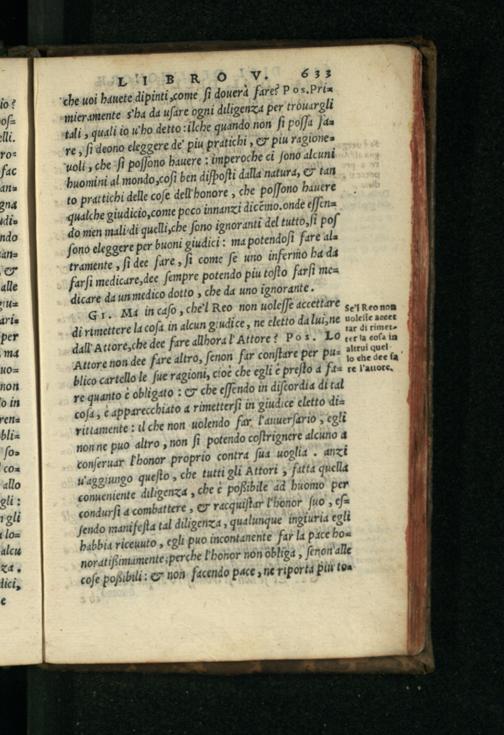 LIBRO V. 633
che uoi hauete dipinti, come si douerà fare? Pos. Pri=
mieramente s'ha da usare ogni diligenza per trouargli
tali, quali io u'ho detto: ilche quando non si possa fa=
re, si deono eleggere de' piu pratichi, & piu ragione=
uoli, che si possono hauere: imperoche ci sono alcuni
huomini al mondo, così ben disposti dalla natura, & tan
to prattichi delle cose dell'honore, che possono hauere
qualche giudicio, come poco innanzi dicẽmo. onde essen=
do men mali di quelli, che sono ignoranti del tutto, si pos
sono eleggere per buoni giudici: ma potendosi fare al=
tramente, si dee fare, si come se uno infermo ha da
farsi medicare, dee sempre potendo piu tosto farsi me=
dicare da un medico dotto, che da uno ignorante.
GI. Ma in caso, che'l Reo non uolesse accettare
di rimettere la cosa in alcun giudice, ne eletto da lui, ne
dall'Attore, che dee fare allhora l'Attore? Pos. Lo
Attore non dee fare altro, senon far constare per pu=
blico cartello le sue ragioni, cioè che egli è presto a fa=
re quanto è obligato: & che essendo in discordia di tal
cosa, è apparecchiato a rimettersi in giudice eletto di=
rittamente: il che non uolendo far l'auuersario, egli
non ne puo altro, non si potendo costrignere alcuno a
conseruar l'honor proprio contra sua uoglia. anzi
u'aggiungo questo, che tutti gli Attori, fatta quella
conueniente diligenza, che è poßibile ad huomo per
condursi a combattere, & racquistar l'honor suo, es=
sendo manifesta tal diligenza, qualunque ingiuria egli
habbia riceuuto, egli puo incontanente far la pace ho=
noratißimamente: perche l'honor non obliga, senon alle
cose poßibili: & non facendo pace, ne riporta piu to=
Se'l Reo non
uolesse accet
tar di rimet=
ter la cosa in
altrui quel
lo che dee fa
re l'attore.